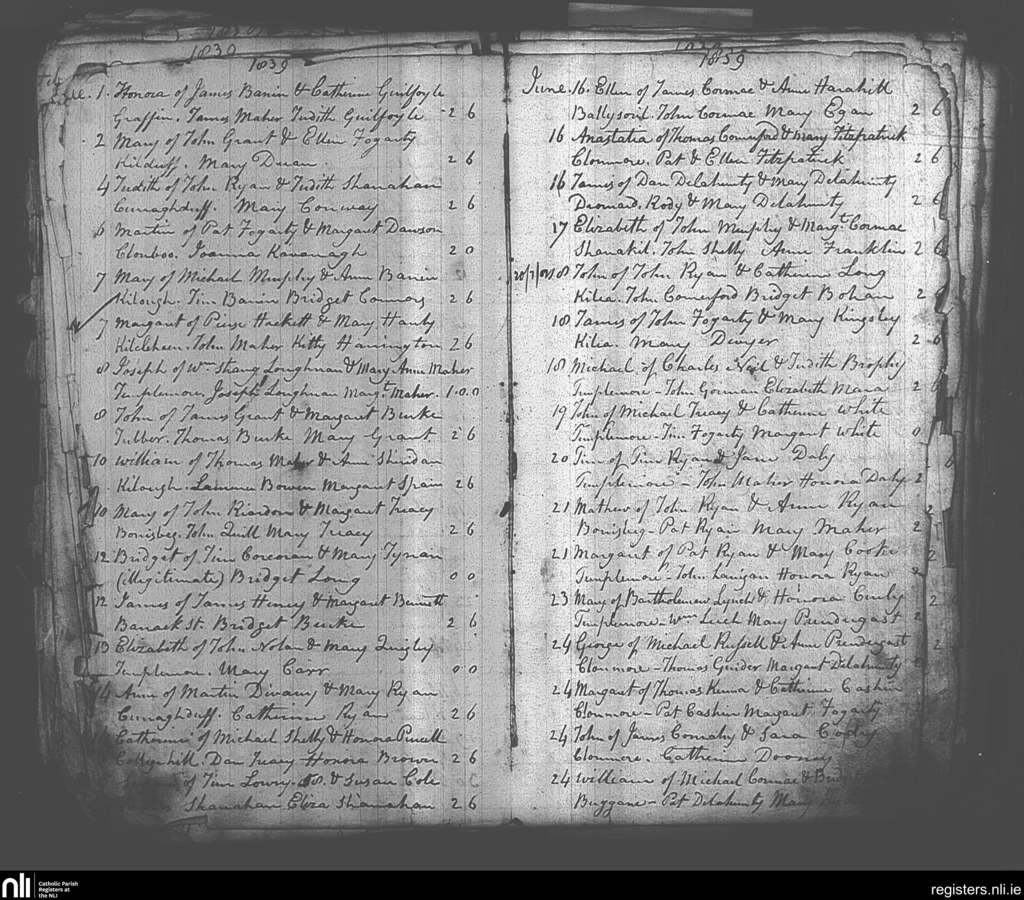 1830
1839
June. 1. Honora of James Banin & Catherine Guilfoyle
Graffin. James Maher Judith Guilfoyle 2 6
2 Mary of John Grant & Ellen Fogarty
Kilduff. Mary Duan. 2 6
4 Judith of John Ryan & Judith Shanahan
Curraghduff. Mary Conway 2 6
6 Martin of Pat Fogarty & Margaret Dawson
Clonboo. Joanna Kavanagh 2 0
7 Mary of Michael Murphy & Anne Banin
Kilough. Tim Banin Bridget Connors 2 6
7 Margaret of Pierse Hackett & Mary Hanly
John Maher Kitty Harrington 2 6
8 Joseph of Wm Shang Loughnan & Mary Anne Maher
Templemore. Joseph Loughnan Margt. Maher. 1.0.0
8 John of James Grant & Margaret Burke
Tulber. Thomas Burke Mary Grant 2 6
10 William of Thomas Maher & Anne Sheridan
Kilough. Bowen Margaret Spain 2 6
10 Mary of John Riordon & Margaret Treacy
Borrisbeg. John Quill Mary Treacy 2 6
12 Bridget of Tim Corcoran & Mary Tynan
(illegitimate) Bridget Long 0 0
12 James of James Heney & Margaret Bennett
Barrack St. Bridget Burke 2 6
13 Elizabeth of John Nolan & Mary Quigley
Templemore. Mary Carr 0 0
14 Anne of Martin Divany & Mary Ryan
Curraghduff. Catherine Ryan 2 6
Catherine of Michael Shelly & Honora Purcell
Dan Treacy Honora Brown 2 6
of Tim Lowry & Susan Cole
Shanahan Eliza Shanahan 2 6
1839
June. 16. Ellen of James Cormac & Anne Harahill
John Cormac Mary Egan 2 6
16 Anastatia of Thomas Comerford & Mary Fitzpatrick
Clonmore. Pat & Ellen Fitzpatrick 2 6
16 James of Dan Delahunty & Mary Delahunty
Dromard. Rody & Mary Delahunty 2 6
17 Elizabeth of John Murphy & Margt. Cormac
Shanakil. John Shelly Anne Franklin 2 6
18 John of John Ryan & Catherine Long
Kilea. John Comerford Bridget Bohan 2 6
18 James of John Fogarty & Mary Kingsley
Kilea. Mary Dwyer 2 6
18 Michael of Charles Neil & Judith Brophy
Templemore. John Gorman Elizabeth Mara 2 6
19 John of Michael Treacy & Catherine White
Templemore - Tim Fogarty Margaret White 0
20 Tim of Tim Ryan & Jane Daly
Templemore - John Maher Honora Daly 2
21 Mathew of John Ryan & Anne Ryan
Borrisbeg - Pat Ryan Mary Maher 2
21 Margaret of Pat Ryan & Mary Cooke
Templemore - John Lanigan Honora Ryan 2
23 Mary of Bartholemew Lynch & Honora
Templemore - Wm Leech Mary Pendergast 2
24 George of Michael Russell & Anne Pendergast
Clonmore - Thomas Guider Margaret Delahunty
24 Margaret of Thomas Kenna & Catherine Cashin
Clonmore - Pat Cashin Margaret Fogarty
24 John of James Cormahy & Sara
Clonmore. Catherine Dooney
24 William of Michael Cormac &
Buggane - Pat Delahunty Mary
nli
Catholic Parish
Registers at
the NLI
registers.nli.ie